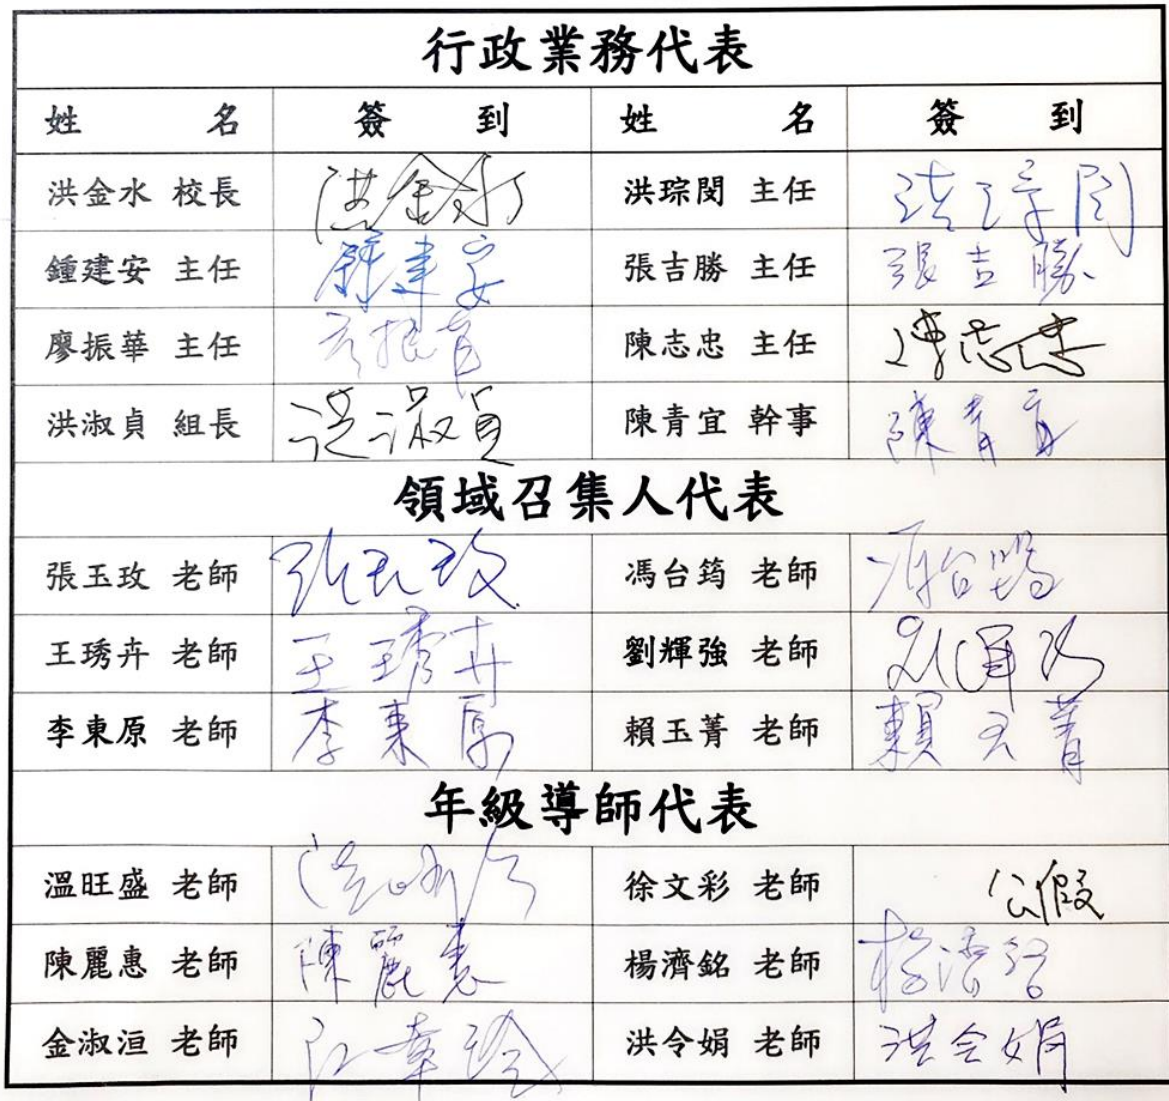 行政業務代表
姓名 簽到 姓名 簽到
洪金水 校長 洪金水 洪琮閔 主任 洪琮閔
鍾建安 主任 鍾建安 張吉勝 主任 張吉勝
廖振華 主任 陳志忠 主任 陳志忠
洪淑貞 組長 洪淑貞 陳青宜 幹事 陳青宜
領域召集人代表
張玉玫 老師 張玉玫 馮台筠 老師 馮台筠
王琇卉 老師 王琇卉 劉輝強 老師 劉輝强
李東原 老師 李東原 賴玉菁 老師 賴玉菁
年級導師代表
溫旺盛 老師 徐文彩 老師 公假
陳麗惠 老師 陳麗惠 楊濟銘 老師 楊濟銘
金淑洹 老師 洪令娟 老師 洪令娟